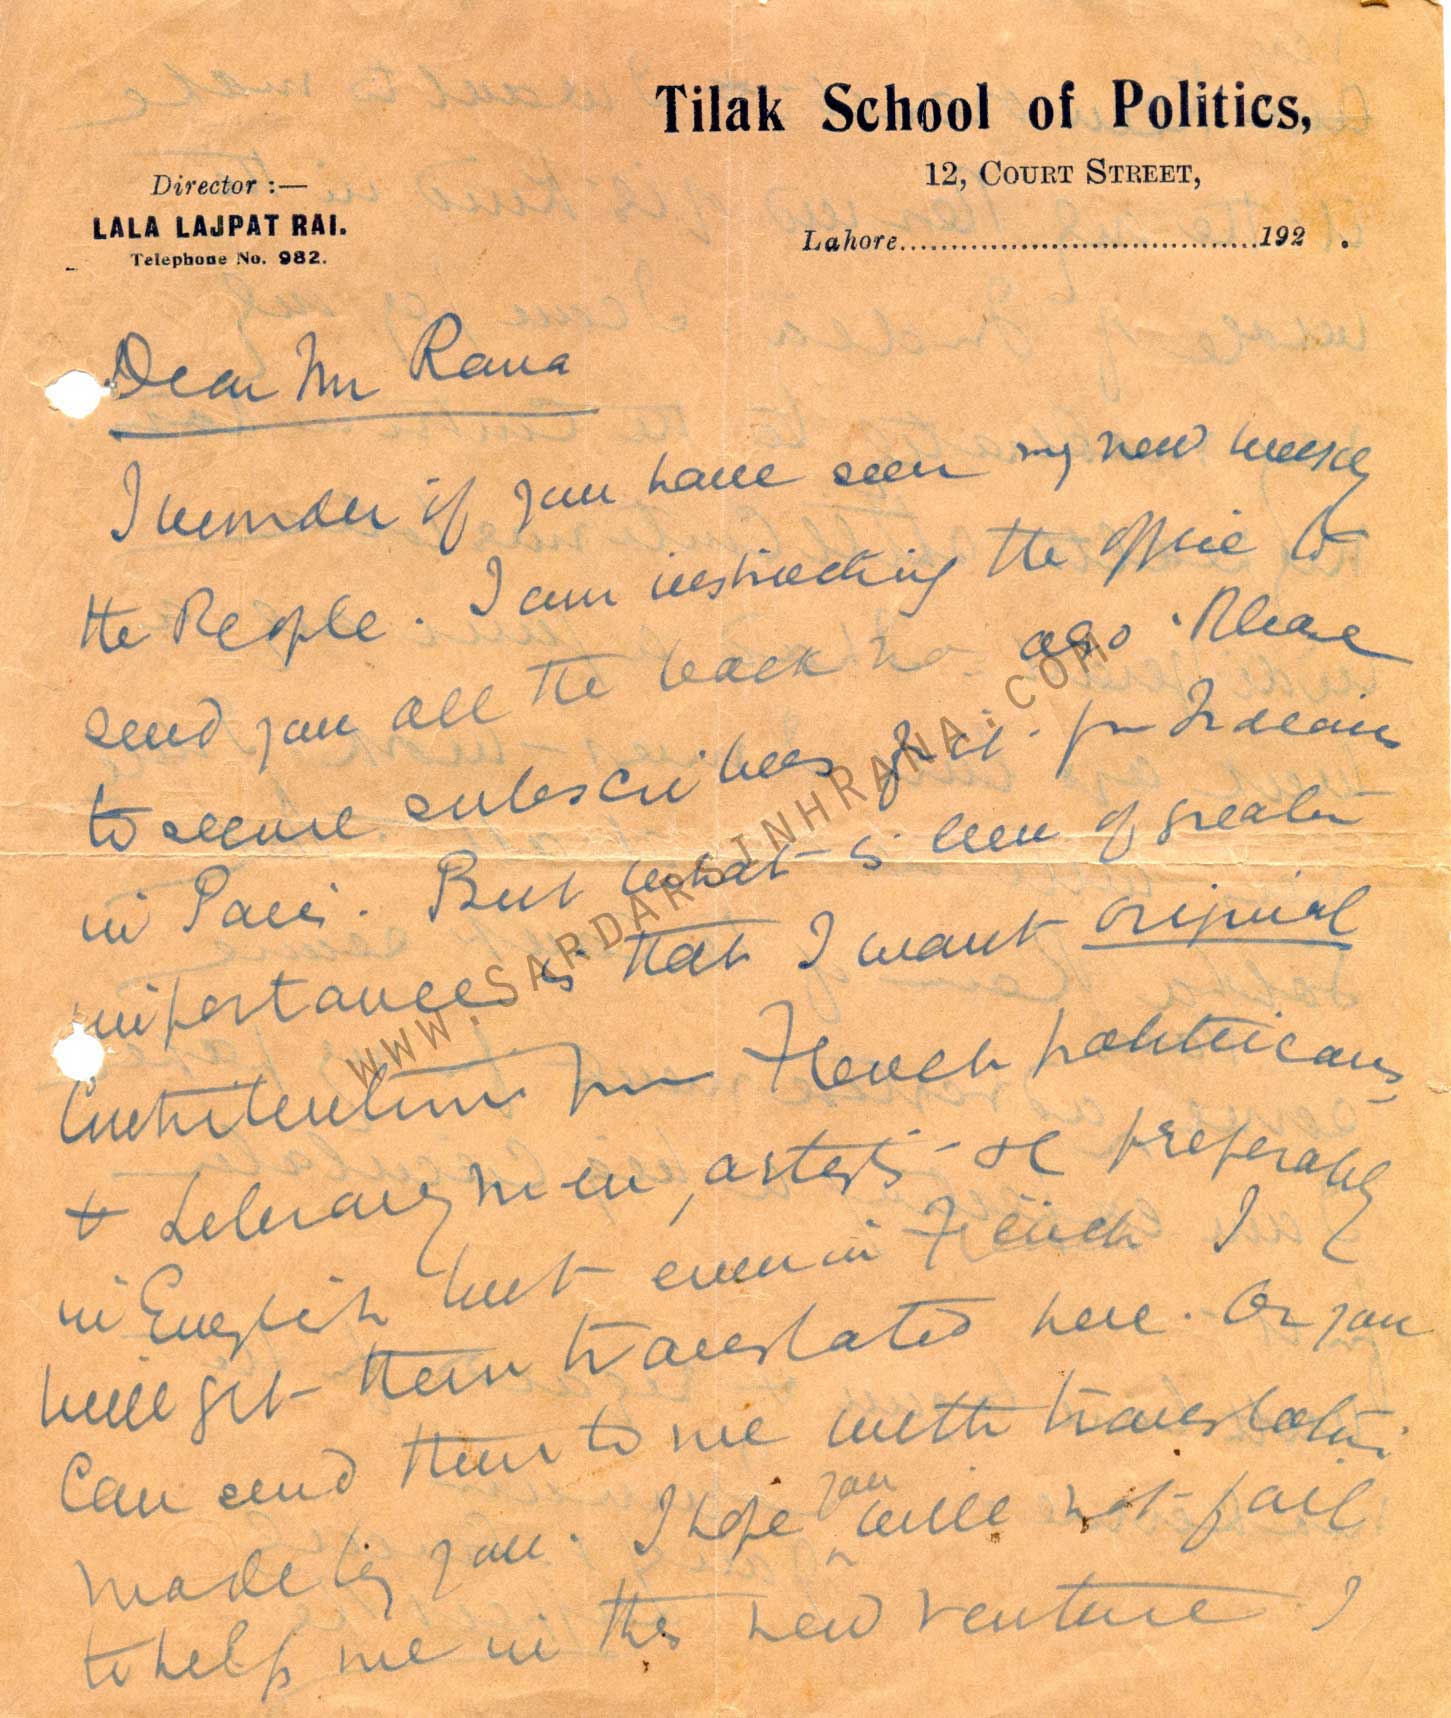 Tilak School of Politics,
12, COURT STREET,
Director :—
LALA LAJPAT RAI.
Telephone No. 982.
Lahore....................................192 .
Dear Mr Rana
I wonder if you have seen my new weekly
the People. I am instructing the office to
send you all the back no. also. Please
to secure subscribers for it for Indians
in Paris. But what is even of greater
importance is that I want original
Contributions from French politicians
& Literary men, artists &c preferably
in English but even in French I
will get them translated here. Or you
can send them to me with translation
made by you. I hope you will not fail
to help me in this new venture I
WWW.SARDARSINHRANA.COM